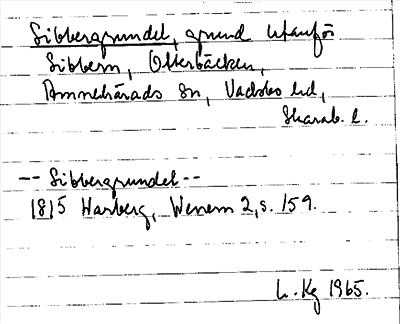 Sibbergrundet, grund utanför
Sibbern, Otterbäcken,
Amnehärads sn, Vadsbo hd,
Skarab. l.
-- Sibbergrundet --
1815 Warberg, Wenern 2, s. 159.
L. Kg 1965.